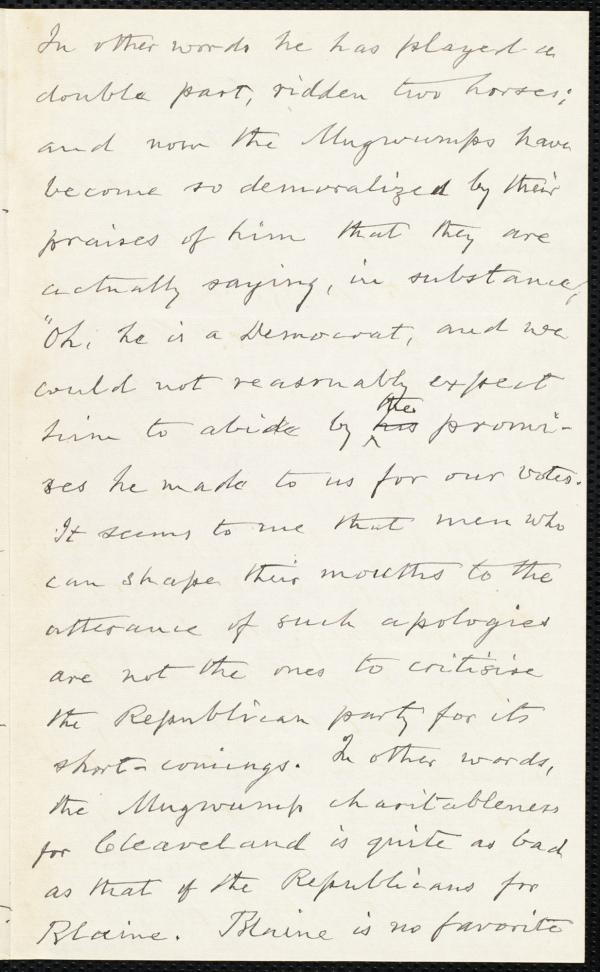 In other words he has played a
double part, ridden two horses;
and now the Mugwumps have
become so demoralized by their
praises of him that they are
actually saying, in substance,
"Oh, he is a Democrat, and we
could not reasonably expect
the
him to abide by his promi-
ses he made to us for our votes.
It seems to me that men who
can shape their mouths to the
utterance of such apologies
are not the ones to critisise
the Republican party for its
short-comings. In other words,
the Mugwump charitableness
for Cleaveland is quite as bad
as that of the Republicans for
Blaine. Blaine is no favorite